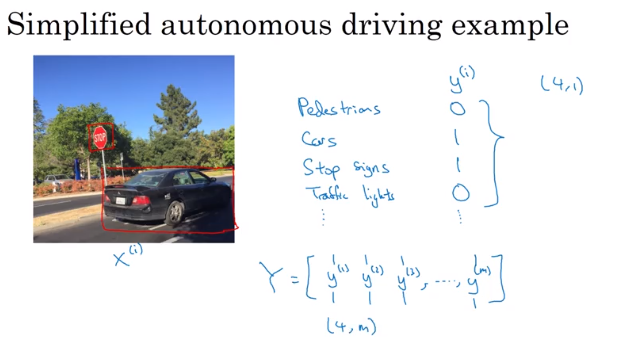 Simplified autonomous driving example
y^(i) (4,1)
Pedestrians 0
Cars 1
Stop signs 1
Traffic lights 0
⋮ ⋮
STOP
x^(i)
Y = [ y^(1) y^(2) y^(3) , ...., y^(m) ]
(4, m)